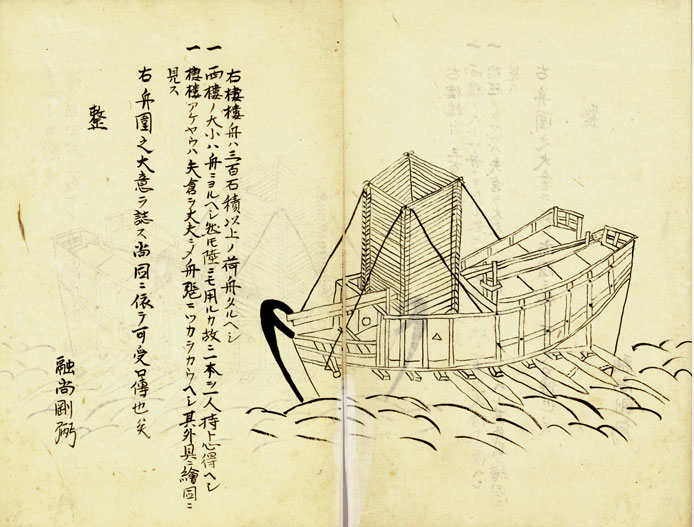 右棲楼舟ハ三百石積以上ノ荷舟タルヘシ
一 両棲ノ大小ハ舟ニヨルヘシ 陸ニモ用ルカ故ニ二本ヲ一人持ト心得ヘシ
一 棲楼アケヤウハ矢倉ヲ大夫ニ 舟 ニツカシカウヘシ其外具ニ繪圖ニ
見ス
右舟圖之大意ヲ誌ス尚図ニ依テ可受口傳也矣
整
融尚剛弼